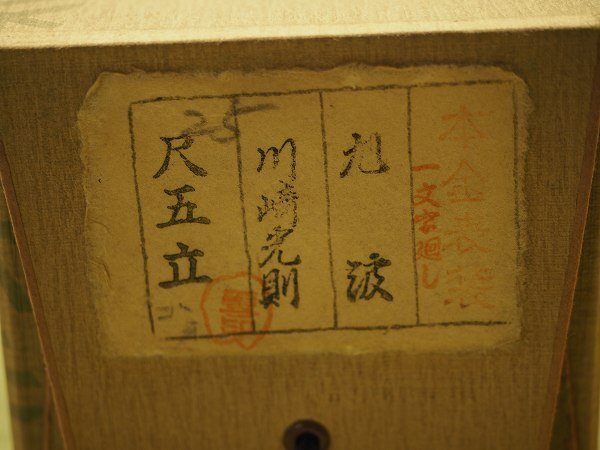 本金表装
一文字廻し
旭波
川崎光則
尺五立
25